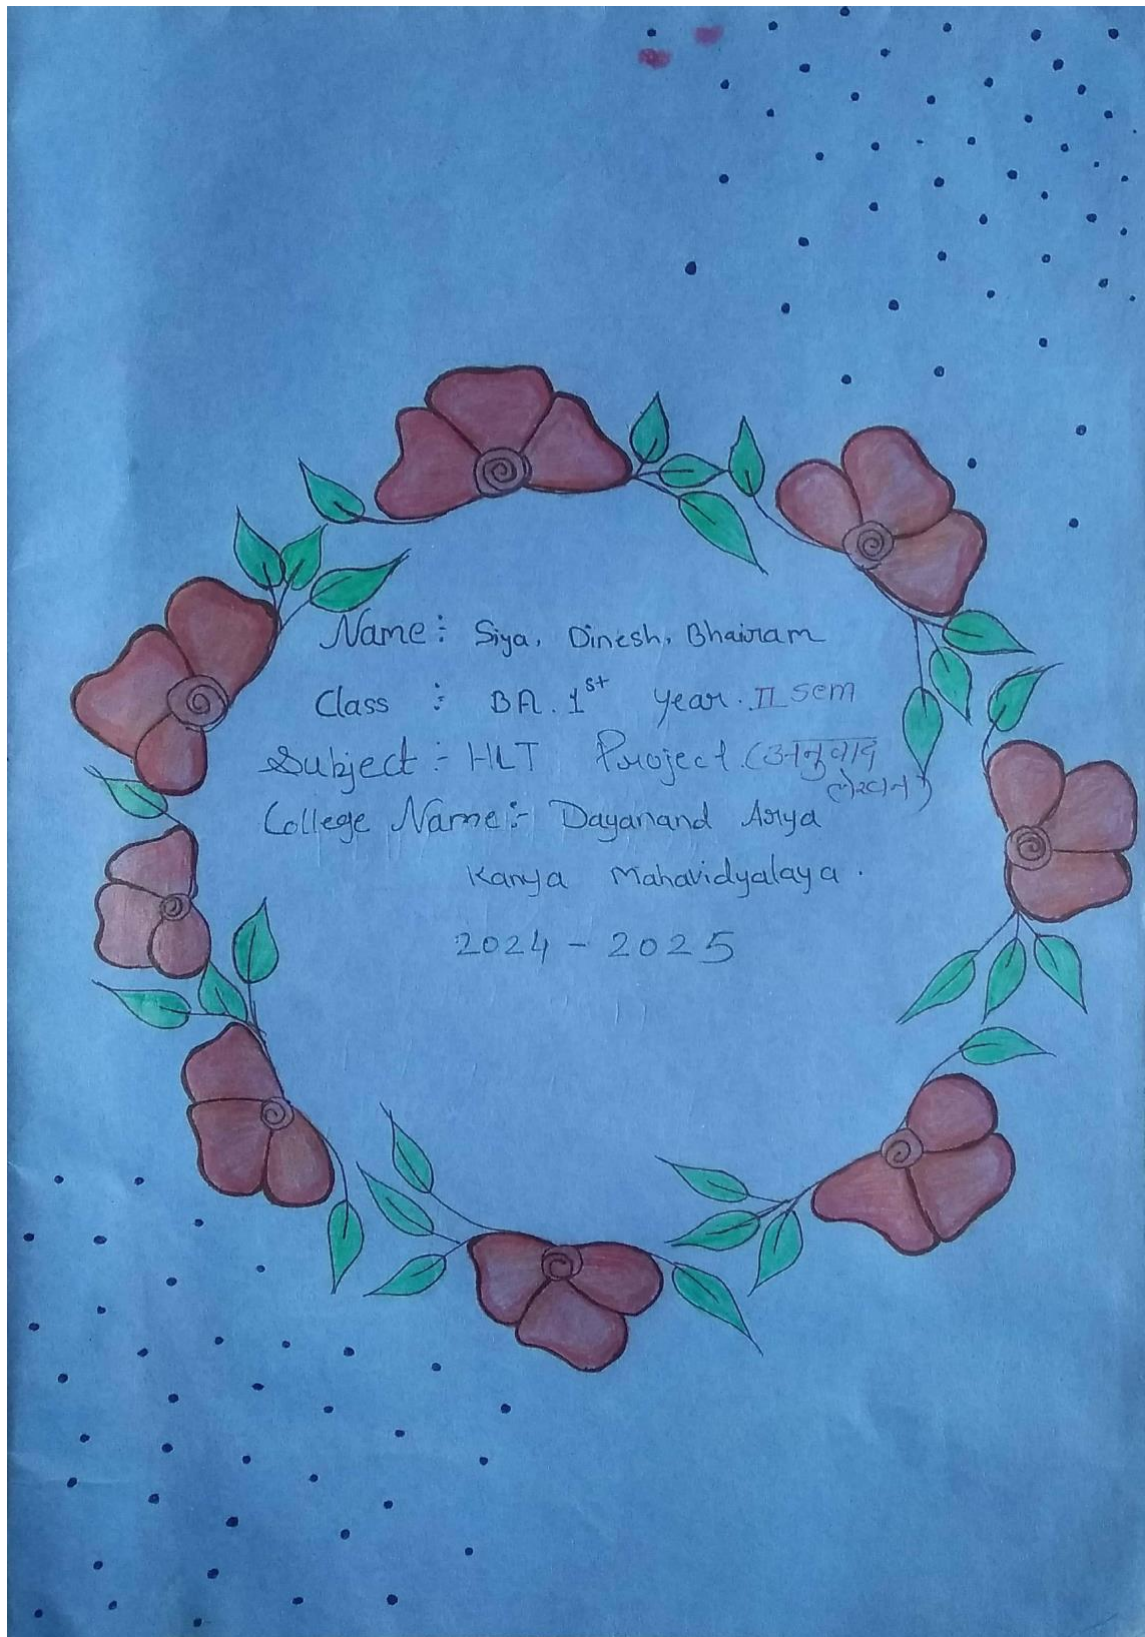 Name : Siya. Dinesh. Bhairam
Class : BA. 1st Year. II Sem
Subject :- HLT Project (अनुवाद
लेखन)
College Name :- Dayanand Arya
Kanya Mahavidyalaya .
2024 - 2025